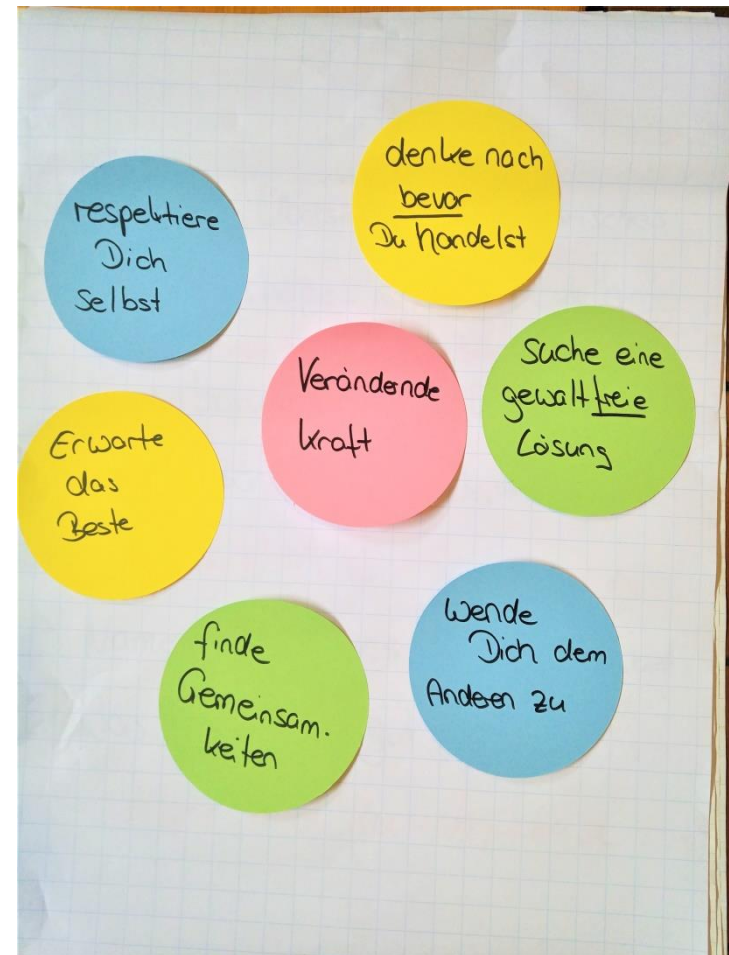 respektiere
Dich
Selbst
denke nach
bevor
Du handelst
Verändernde
Kraft
Suche eine
gewaltfreie
Lösung
Erwarte
das
Beste
finde
Gemeinsam-
keiten
Wende
Dich dem
Anderen zu